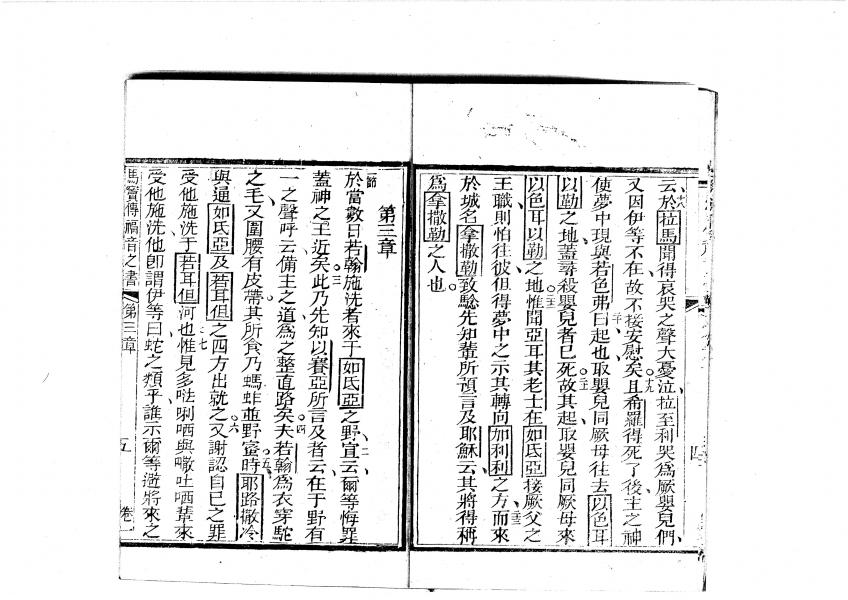 云於拉馬聞得哀哭之聲大憂泣拉至利哭爲厥嬰兒們
又因伊等不在故不接安慰矣且希羅得死了後主之神
使夢中現與若色弗曰起也取嬰兒同厥母往去以色耳
以勒之地蓋尋殺嬰兒者已死故其起取嬰兒同厥母來
以色耳以勒之地惟聞亞耳其老士在如氏亞接厥父之
王職則怕往彼但得夢中之示其轉向加利利之方而來
於城名拿撒勒致騐先知輩所預言及耶穌云其將得稱
爲拿撒勒之人也
第三章
一節
於當數日若翰施洗者來于如氏亞之野宣云爾等悔罪
蓋神之王近矣此乃先知以賽亞所言及者云在于野有
一之聲呼云備主之道爲之整直路矣夫若翰爲衣穿駝
之毛又圍腰有皮帶其所食乃螞蚱並野蜜時耶路撒冷
與通如氏亞及若耳但之四方出就之又謝認自己之罪
受他施洗于若耳但河也惟見多𠵽唎哂與𠽌吐哂輩來
受他施洗他卽謂伊等曰蛇之類乎誰示爾等逃將來之
馬竇傳福音之書 第三章 五 卷一